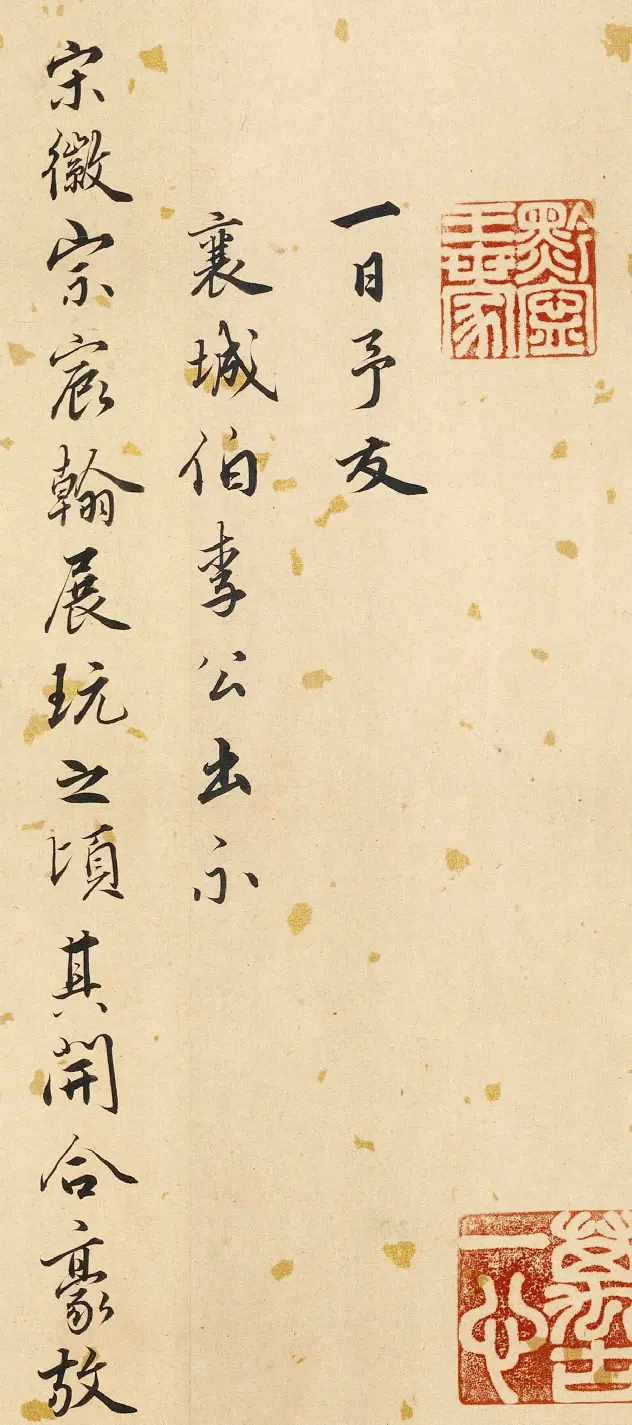 黔寧
王世家
一心
一日予友
襄城伯李公出示
宋徽宗宸翰展玩之頃其開合豪放